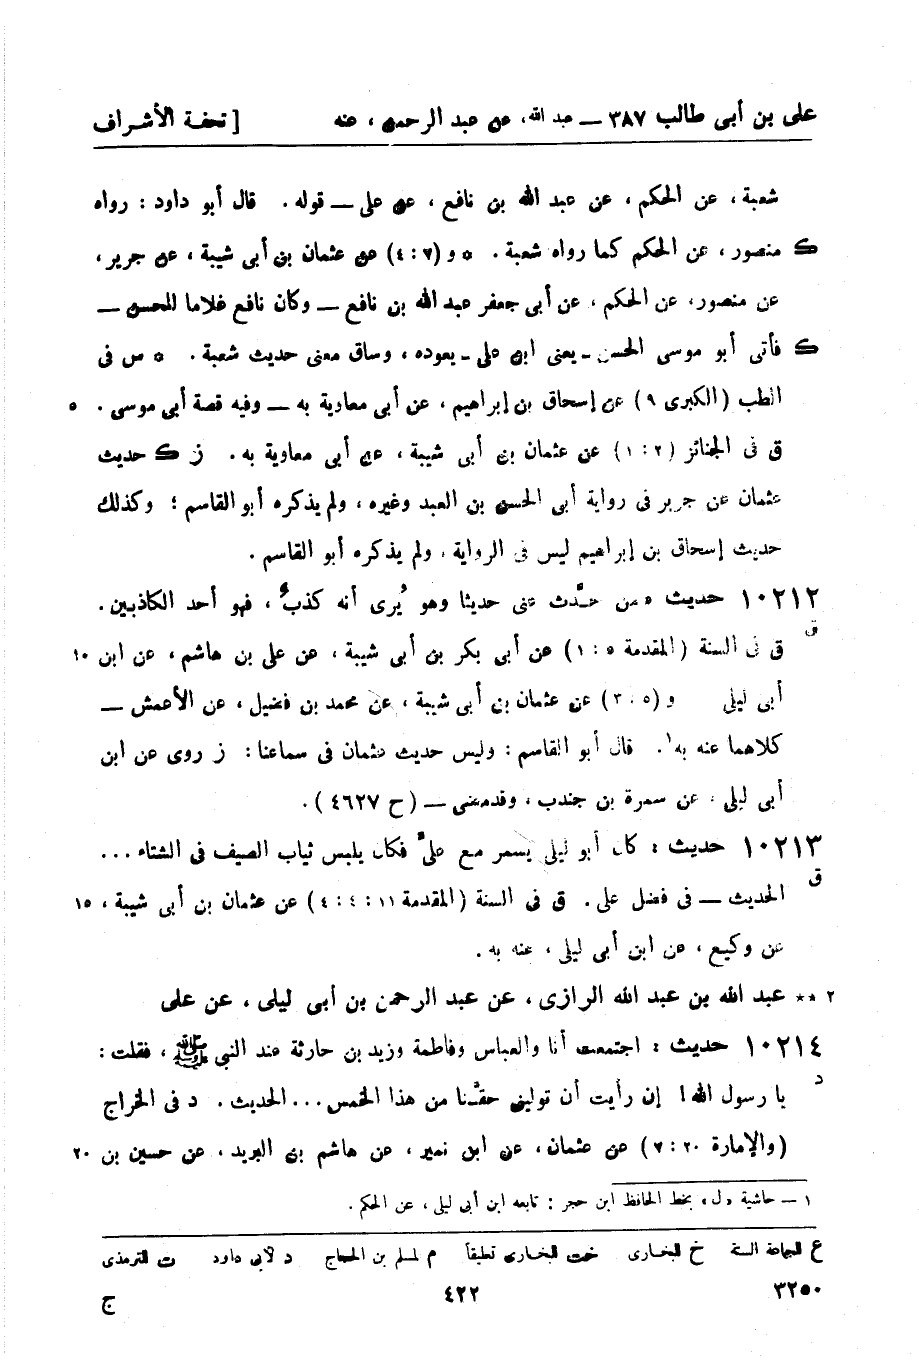 على بن أبى طالب ٣٨٧ — عبد الله، عن عبد الرحمن ، عنه [ تحفـة الأشـراف
شعبة ، عن الحكم ، عن عبد الله بن نافع ، عن على — قوله . قال أبو داود : رواه
ك منصور ، عن الحكم كما رواه شعبة . * و (٧ : ٤) عن عثمان بن أبى شيبة ، عن جرير ،
عن منصور، عن الحكم ، عن أبى جعفر عبد الله بن نافع — وكان نافع غلاما للحسن —
ك فأتى أبو موسى الحسن - يعنى ابن على - يعوده ، وساق معنى حديث شعبة . * س فى
الطب (الكبرى ٩) عن إسحاق بن إبراهيم ، عن أبى معاوية به — وفيه قصة أبى موسى . ٥
ق فى الجنائز (٢ : ١) عن عثمان بن أبى شيبة ، عن أبى معاوية به . ز ك حديث
عثمان عن جرير فى رواية أبى الحسن بن العبد وغيره ، ولم يذكره أبو القاسم ؛ وكذلك
حديث إسحاق بن إبراهيم ليس فى الرواية ، ولم يذكره أبو القاسم .
١٠٢١٢ حديث : من حدَّث عنى حديثا وهو يُرى أنه كذبٌ ، فهو أحد الكاذبين .
ق
ق فى السنة (المقدمة ٥ : ١) عن أبى بكر بن أبى شيبة ، عن على بن هاشم ، عن ابن ١٠
أبى ليلى و (٥ : ٣) عن عثمان بن أبى شيبة ، عن محمد بن فضيل ، عن الأعمش —
كلاهما عنه به١. قال أبو القاسم : وليس حديث عثمان فى سماعنا : ز روى عن ابن
أبى ليلى ، عن سمرة بن جندب ، وقد مضى — (ح ٤٦٢٧) .
١٠٢١٣ حديث : كان أبو ليلى يسمر مع علىّ فكان يلبس ثياب الصيف فى الشتاء ...
ق
الحديث — فى فضل على . ق فى السنة (المقدمة ١١ : ٤ : ٤) عن عثمان بن أبى شيبة ، ١٥
عن وكيع ، عن ابن أبى ليلى ، عنه به .
٢ ** عبد الله بن عبد الله الرازى ، عن عبد الرحمن بن أبى ليلى ، عن على
١٠٢١٤ حديث : اجتمعت أنا والعباس وفاطمة وزيد بن حارثة عند النبى ﷺ ، فقلت :
د
يا رسول الله ! إن رأيت أن تولينى حقَّنا من هذا الخمس ... الحديث . د فى الخراج
(والإمارة ٢٠ : ٧) عن عثمان ، عن ابن نمير ، عن هاشم بن البريد ، عن حسين بن ٢٠
١ — حاشية «ل» بخط الحافظ ابن حجر : تابعه ابن أبى ليلى ، عن الحكم .
ع للجماعة الستة خ للبخارى خت للبخارى تعليقا م لمسلم بن الحجاج د لأبى داود ت للترمذى
٣٢٥٠ ٤٢٢ ج